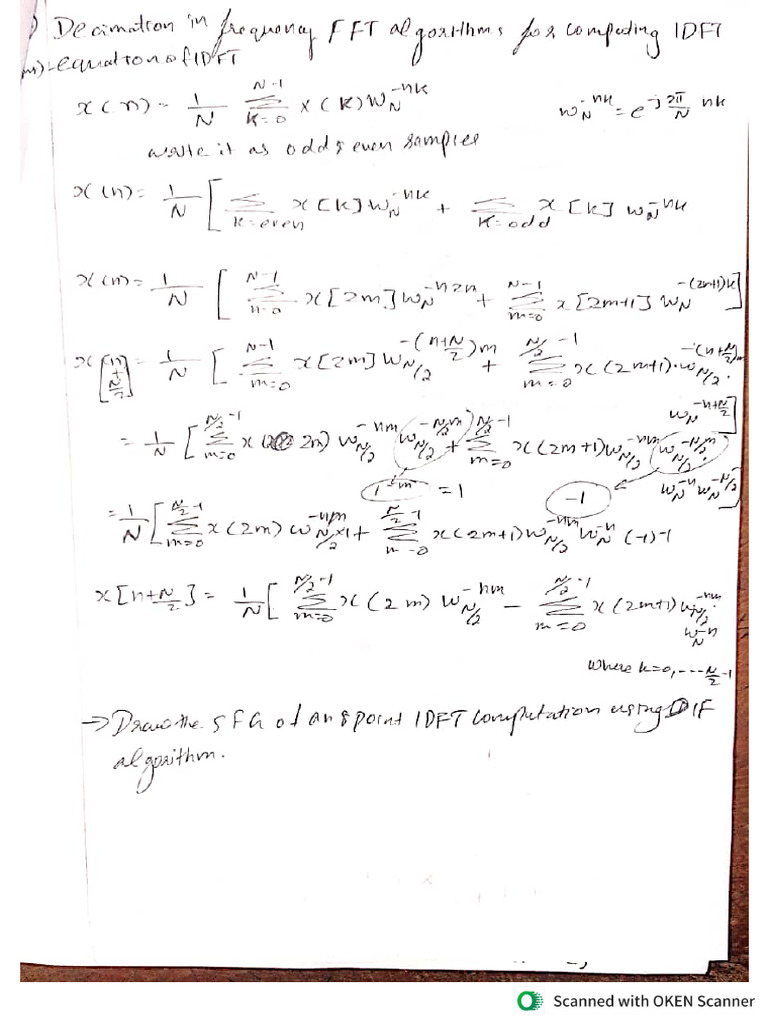 Decimation in frequency FFT algorithms for computing IDFT
equation of IDFT
x(n) = 1/N Σ_{k=0}^{N-1} X(k) W_N^{-nk}    W_N^{-nk} = e^{-j 2π/N nk}
write it as odd & even samples
x(n) = 1/N [ Σ_{k=even} x[k] W_N^{-nk} + Σ_{k=odd} x[k] W_N^{-nk}
x(n) = 1/N [ Σ_{n=0}^{N-1} x[2m] W_N^{-n2m} + Σ_{m=0}^{N-1} x[2m+1] W_N^{-(2m+1)k} ]
x[n+N/2] = 1/N [ Σ_{m=0}^{N-1} x[2m] W_{N/2}^{-(n+N/2)m} + Σ_{m=0}^{N/2-1} x(2m+1) . W_{N/2}^{-(n+N/2)m} .
W_N^{-n+N/2} ]
= 1/N [ Σ_{m=0}^{N/2-1} x(2m) W_{N/2}^{-nm} W_{N/2}^{-N/2 m} + Σ_{m=0}^{N/2-1} x(2m+1) W_{N/2}^{-nm} W_{N/2}^{-N/2 m} .
= 1    -1    W_N^{-n} W_N^{-N/2} ]
= 1/N [ Σ_{m=0}^{N/2-1} x(2m) W_{N/2}^{-nm} x1 + Σ_{m=0}^{N/2-1} x(2m+1) W_{N/2}^{-nm} W_N^{-n} (-1)-1
x[n+N/2] = 1/N [ Σ_{m=0}^{N/2-1} x(2m) W_{N/2}^{-nm} - Σ_{m=0}^{N/2-1} x(2m+1) W_{N/2}^{-nm} .
W_N^{-n}
where k=0, ---- N/2 -1
→ Draw the SFG of an 8 point IDFT computation using DIF
algorithm.
Scanned with OKEN Scanner